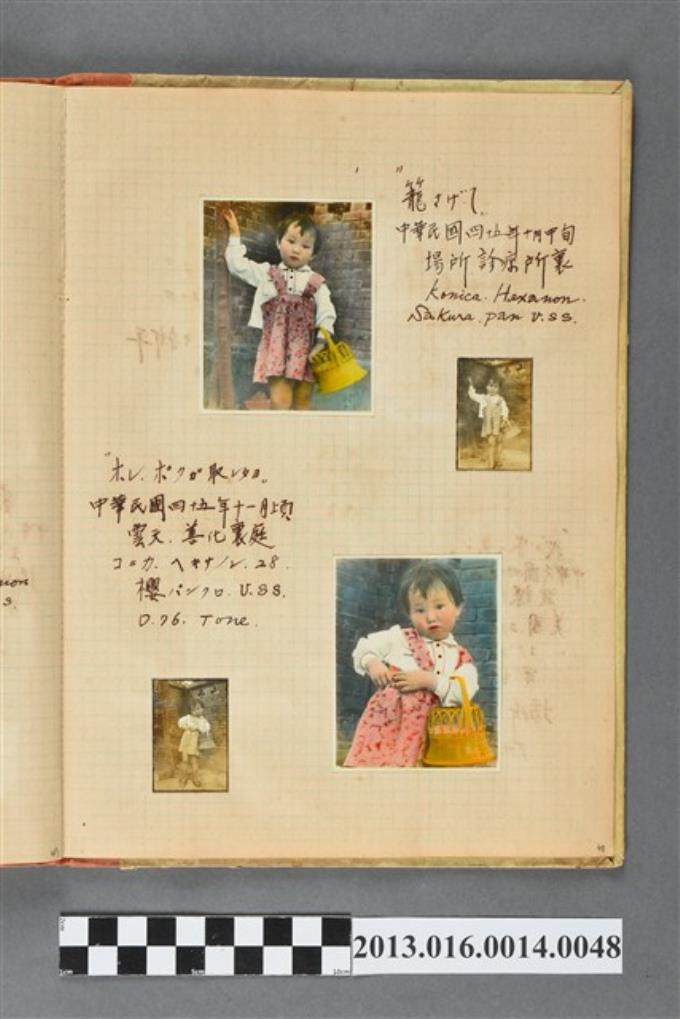 "籠さげて"
中華民國四五年十月中旬
場所 診療所裏
Konica. Hexanon.
Sakura. pan U.SS.
"ホレ、ボクガ取レタヨ"
中華民國四五年十一月頃
雲天. 善化裏庭
コニカ. ヘキサノン. 28.
櫻パンクロ. U.SS.
D.76. Tone.
2013.016.0014.0048
1cm
5cm
10cm